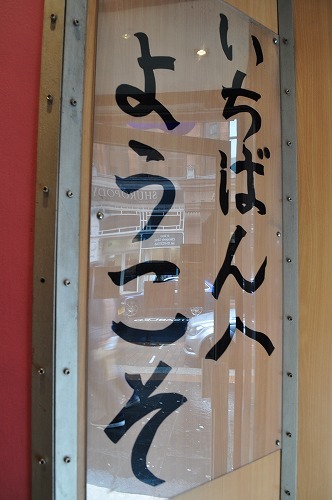 いちばんへ
ようこそ